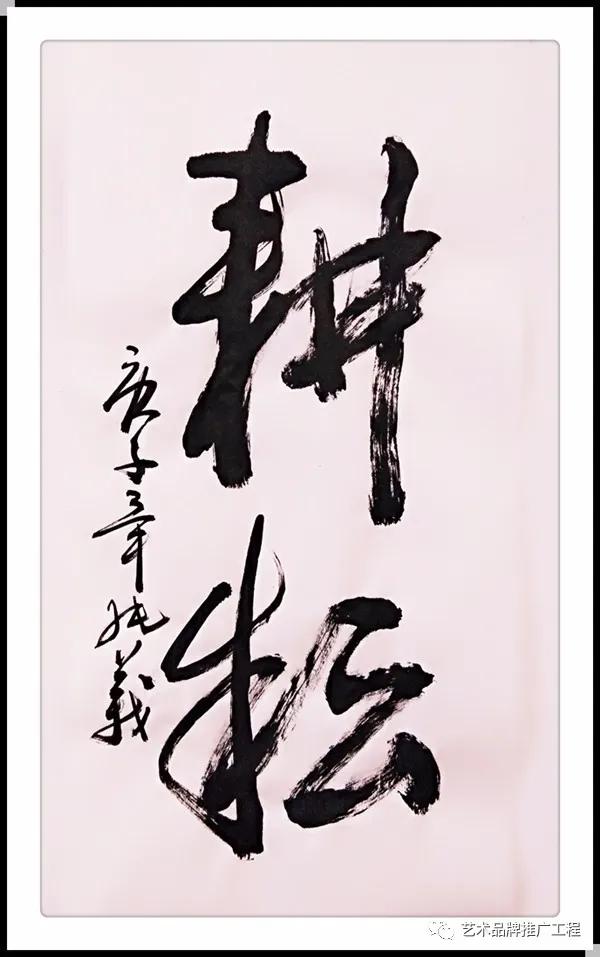 耕耘
庚子 義
艺术品牌推广工程